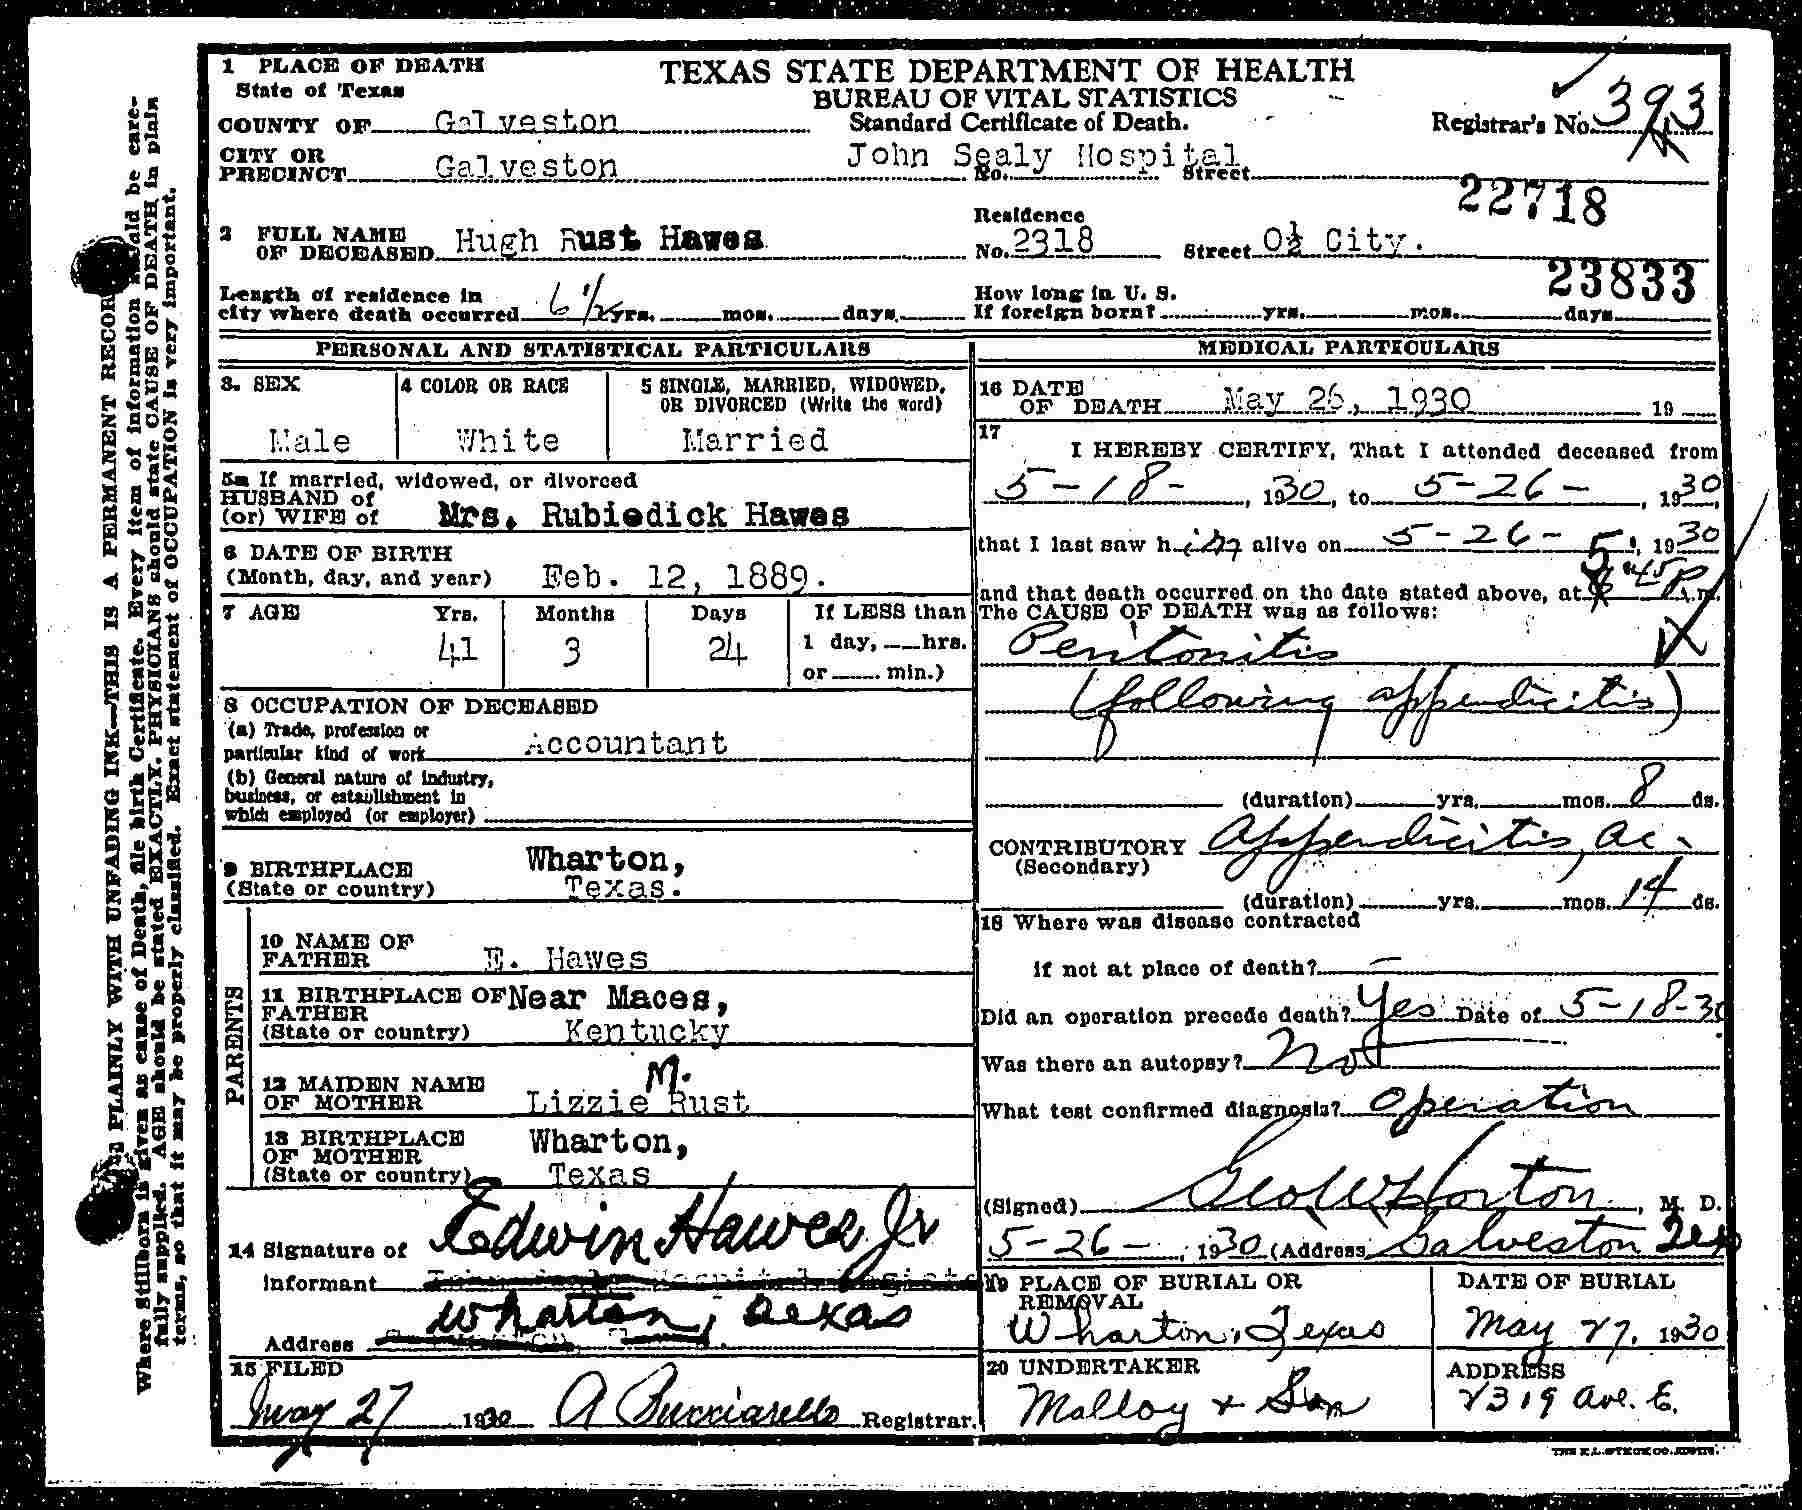 1 PLACE OF DEATH
State of Texas
TEXAS STATE DEPARTMENT OF HEALTH
BUREAU OF VITAL STATISTICS
Standard Certificate of Death.
COUNTY OF Galveston
Registrar's No. 393
CITY OR
PRECINCT Galveston
John Sealy Hospital
No. Street
22718
2 FULL NAME
OF DECEASED Hugh Rust Hawes
Residence
No. 2318 Street O½ City.
23833
Length of residence in
city where death occurred 6 1/2 yrs. mos. days.
How long in U. S.
If foreign born? yrs. mos. days
PERSONAL AND STATISTICAL PARTICULARS
3. SEX
Male
4 COLOR OR RACE
White
5 SINGLE, MARRIED, WIDOWED,
OR DIVORCED (Write the word)
Married
5a If married, widowed, or divorced
HUSBAND of
(or) WIFE of Mrs. Rubiedick Hawes
6 DATE OF BIRTH
(Month, day, and year) Feb. 12, 1889.
7 AGE Yrs. Months Days If LESS than
41 3 24 1 day, hrs.
or min.)
8 OCCUPATION OF DECEASED
(a) Trade, profession or
particular kind of work Accountant
(b) General nature of industry,
business, or establishment in
which employed (or employer)
9 BIRTHPLACE Wharton,
(State or country) Texas.
PARENTS
10 NAME OF
FATHER E. Hawes
11 BIRTHPLACE OF Near Maces,
FATHER
(State or country) Kentucky
12 MAIDEN NAME M.
OF MOTHER Lizzie Rust
13 BIRTHPLACE Wharton,
OF MOTHER
(State or country) Texas
14 Signature of Edwin Hawes Jr
Informant
Address Wharton, Texas
15 FILED
May 27 1930 A Bucciarello Registrar.
MEDICAL PARTICULARS
16 DATE
OF DEATH May 26, 1930 19
17
I HEREBY CERTIFY, That I attended deceased from
5-18-, 1930, to 5-26-, 1930,
that I last saw him alive on 5-26-, 1930
and that death occurred on the date stated above, at 5:45 P.m.
The CAUSE OF DEATH was as follows:
Peritonitis
(following appendicitis)
(duration) yrs. mos. 8 ds.
CONTRIBUTORY Appendicitis, ac.
(Secondary)
(duration) yrs. mos. 14 ds.
18 Where was disease contracted
if not at place of death? —
Did an operation precede death? Yes Date of 5-18-30
Was there an autopsy? No
What test confirmed diagnosis? Operation
(Signed) Geo W Horton, M. D.
5-26-, 1930 (Address) Galveston Tex
19 PLACE OF BURIAL OR
REMOVAL
Wharton, Texas
DATE OF BURIAL
May 27, 1930
20 UNDERTAKER
Malloy & Son
ADDRESS
2319 Ave. E.
PLAINLY WITH UNFADING INK—THIS IS A PERMANENT RECORD
Where Stillborn is given as cause of Death, file birth Certificate. Every item of information should be care-
fully supplied. AGE should be stated EXACTLY. PHYSICIANS should state CAUSE OF DEATH in plain
terms, so that it may be properly classified. Exact statement of OCCUPATION is very important.